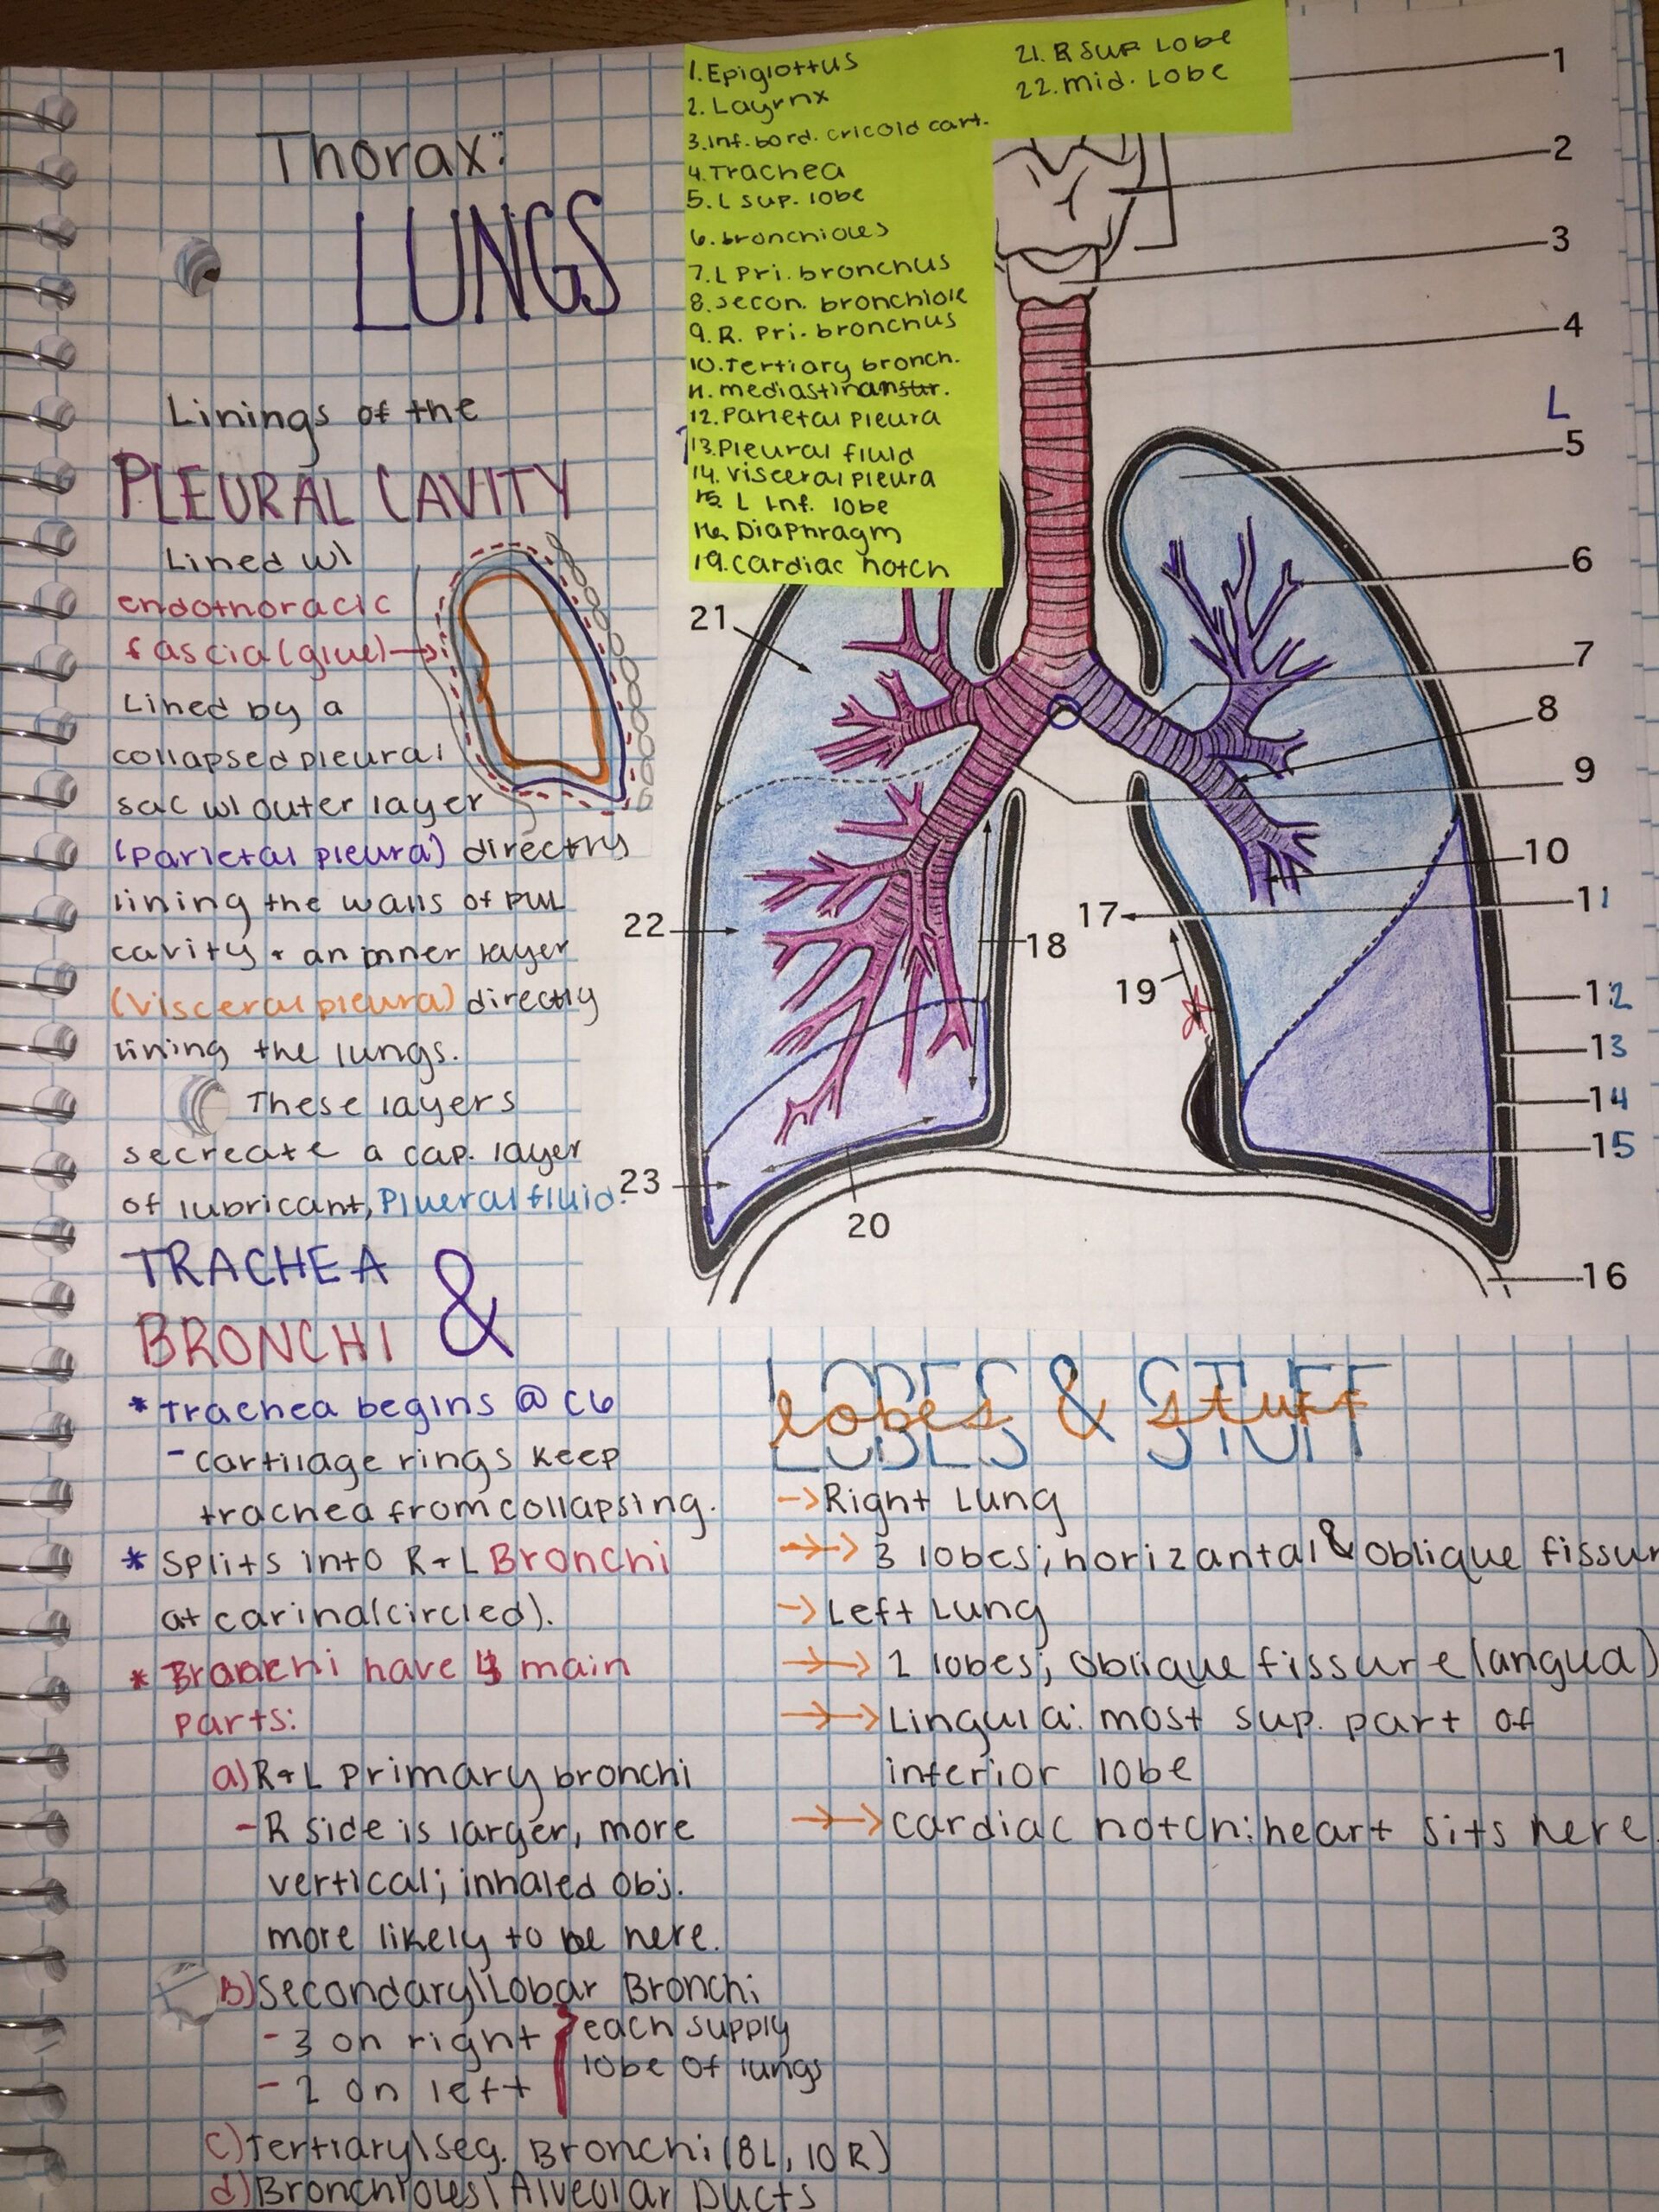 Thorax:
LUNGS
Linings of the
PLEURAL CAVITY
Lined w/
endothoracic
fascia (glue)→
Lined by a
collapsed pleural
sac w/ outer layer
(parietal pleura) directly
lining the walls of pul
cavity + an inner layer
(visceral pleura) directly
lining the lungs.
These layers
secreate a cap. layer
of lubricant, Plueral fluid.
TRACHEA &
BRONCHI
* trachea begins @ C6
- cartilage rings keep
trachea from collapsing.
* Splits into R + L Bronchi
at carina (circled).
* Bronchi have 4 main
parts:
a) R + L primary bronchi
- R side is larger, more
vertical; inhaled obj.
more likely to be here.
b) Secondary\Lobar Bronchi
- 3 on right
- 2 on left
each supply
lobe of lungs
c) Tertiary\seg. Bronchi (8L, 10R)
d) Bronchioles\Alveolar Ducts
1. Epiglottus
2. Layrnx
3. Inf. bord. cricoid cart.
4. Trachea
5. L sup. lobe
6. bronchioles
7. L Pri. bronchus
8. secon. bronchiole
9. R. Pri. bronchus
10. Tertiary bronch.
11. mediastinan str.
12. Parietal Pleura
13. Pleural fluid
14. visceral pleura
15. L Inf. lobe
16. Diaphragm
19. cardiac notch
21. R SUP. Lobe
22. mid. Lobe
1
2
3
4
L
5
6
7
8
9
10
11
12
13
14
15
16
17
18
19
20
21
22
23
LOBES & STUFF
lobes & stuff
→ Right Lung
→→ 3 lobes; horizantal & oblique fissur
→ Left Lung
→→ 2 lobes; oblique fissure (angua)
→→ Lingula: most sup. part of
inferior lobe
→→ cardiac notch: heart sits here